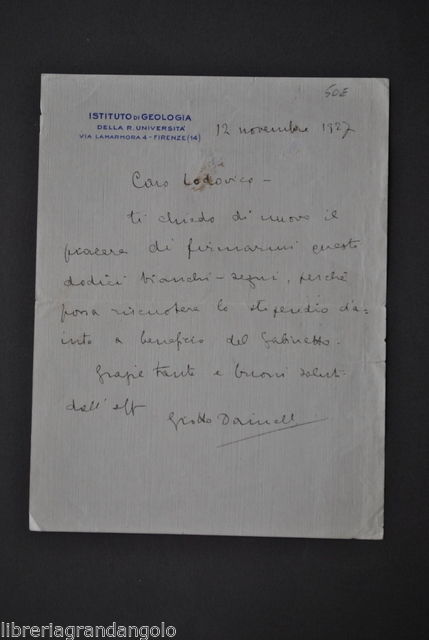 50E
ISTITUTO DI GEOLOGIA
DELLA R. UNIVERSITÀ
VIA LAMARMORA 4 - FIRENZE (14)
12 novembre 1927
Caro Lodovico -
ti chiedo di nuovo il
piacere di firmarmi questi
dodici bianchi-segni, perché
possa riscuotere lo stipendio d'a=
iuto a beneficio del Gabinetto.
Grazie tante e buoni saluti
dall'aff
Giotto Dainelli
libreriagrandangolo